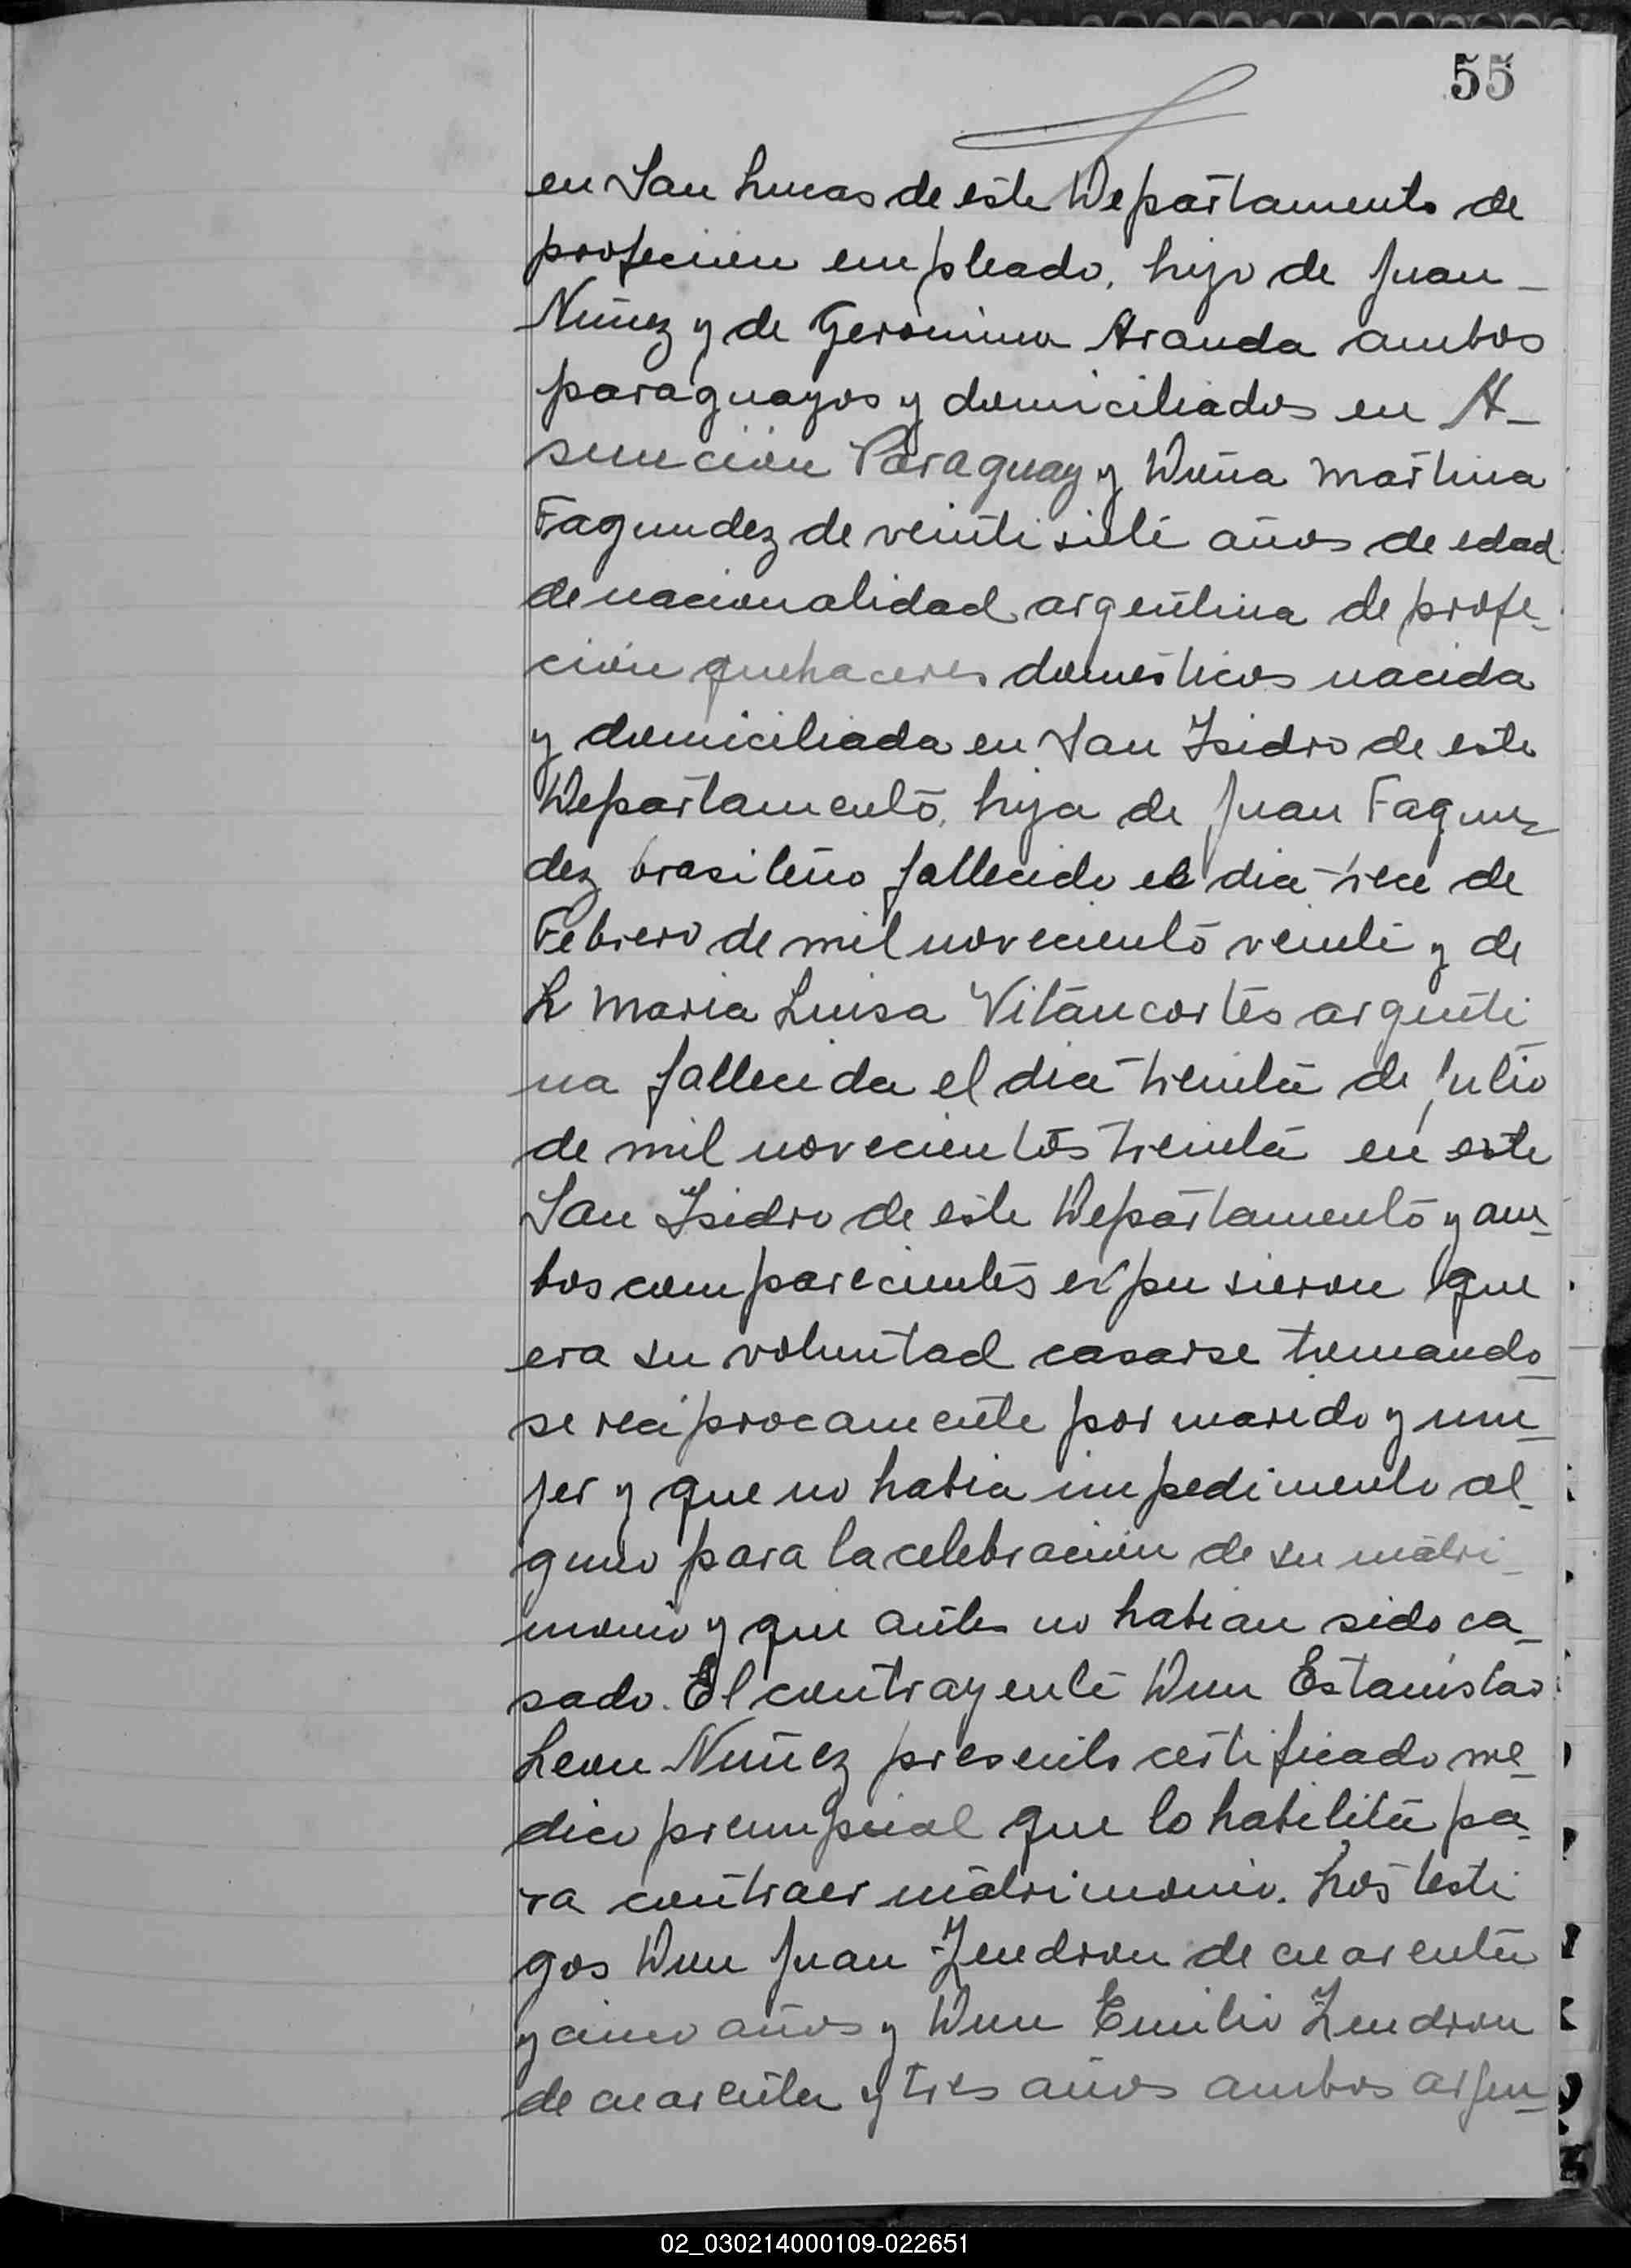 55
en San Lucas de este Departamento de
profecion empleado, hijo de Juan
Nuñez y de Geronima Aranda ambos
paraguayos y domiciliados en A-
suncion Paraguay y Doña Martina
Fagundez de veinti siete años de edad
de nacionalidad argentina de profe-
cion quehaceres domesticos nacida
y domiciliada en San Isidro de este
Departamento, hija de Juan Fagun-
dez brasileño fallecido el dia trece de
Febrero de mil noveciento veinte y de
L Maria Luisa Vitancortes argenti
na fallecida el dia treinta de Julio
de mil novecientos treinta en este
San Isidro de este Departamento y am-
bos comparecientes expusieron que
era su voluntad casarse tomando-
se reciprocamente por marido y mu-
jer y que no habia impedimento al-
guno para la celebracion de su matri-
monio y que antes no habian sido ca-
sado. El contrayente Don Estanislao
Leon Nuñez presento certificado me-
dico prenupcial que lo habilita pa-
ra contraer matrimonio. Los testi
gos Don Juan Zendron de cuarenta
y cinco años y Don Emilio Zendron
de cuarenta y tres años ambos argen-
02_030214000109-022651